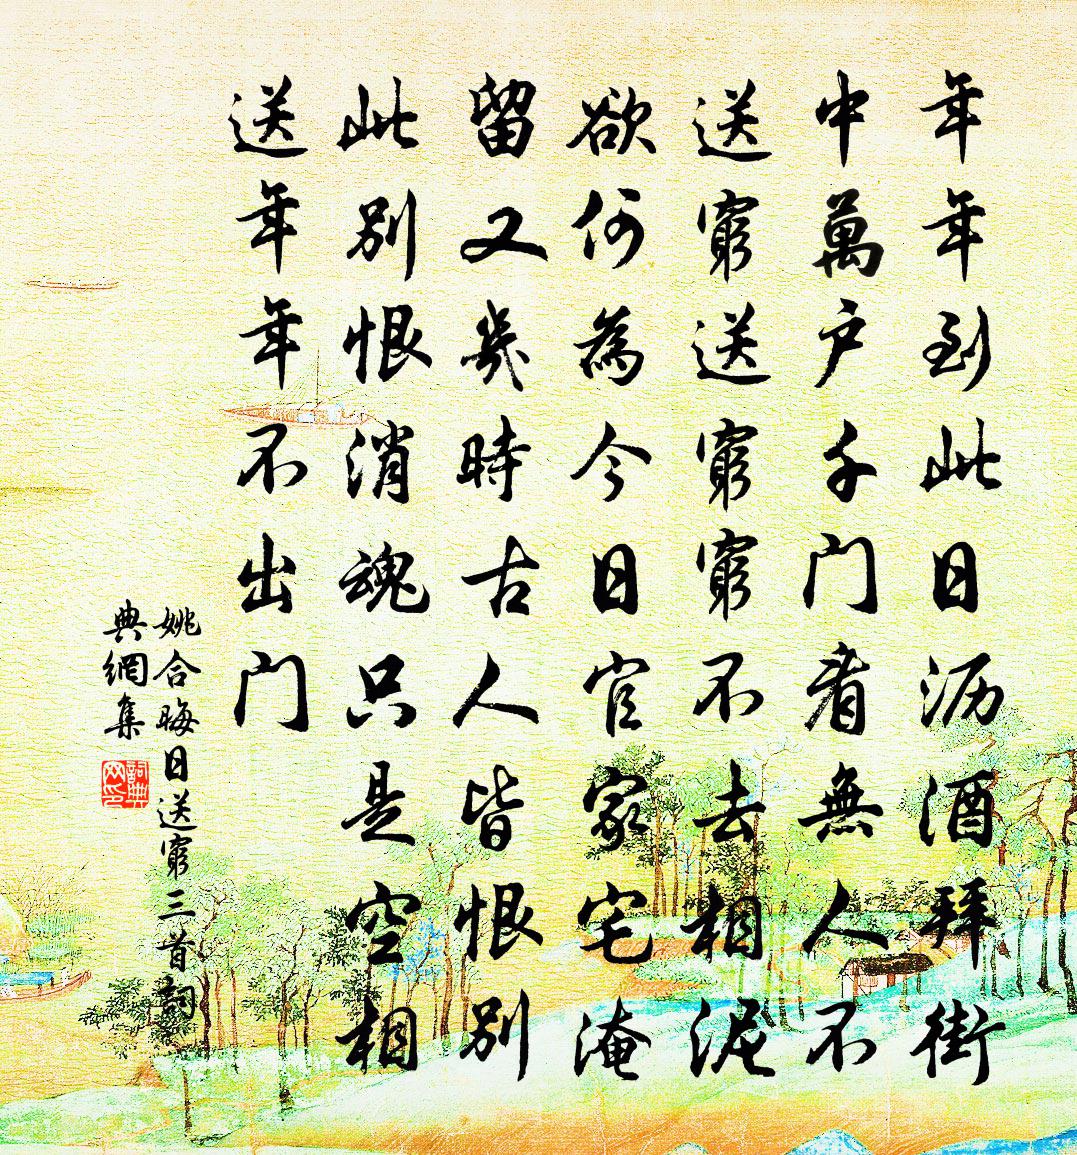 年年到此日沥酒拜街
中萬户千门看無人不
送窮送窮窮不去相泥
欲何為今日官家宅淹
留又幾時古人皆恨别
此别恨消魂只是空相
送年年不出门
姚合晦日送窮三首詞
典網集
詞典网印